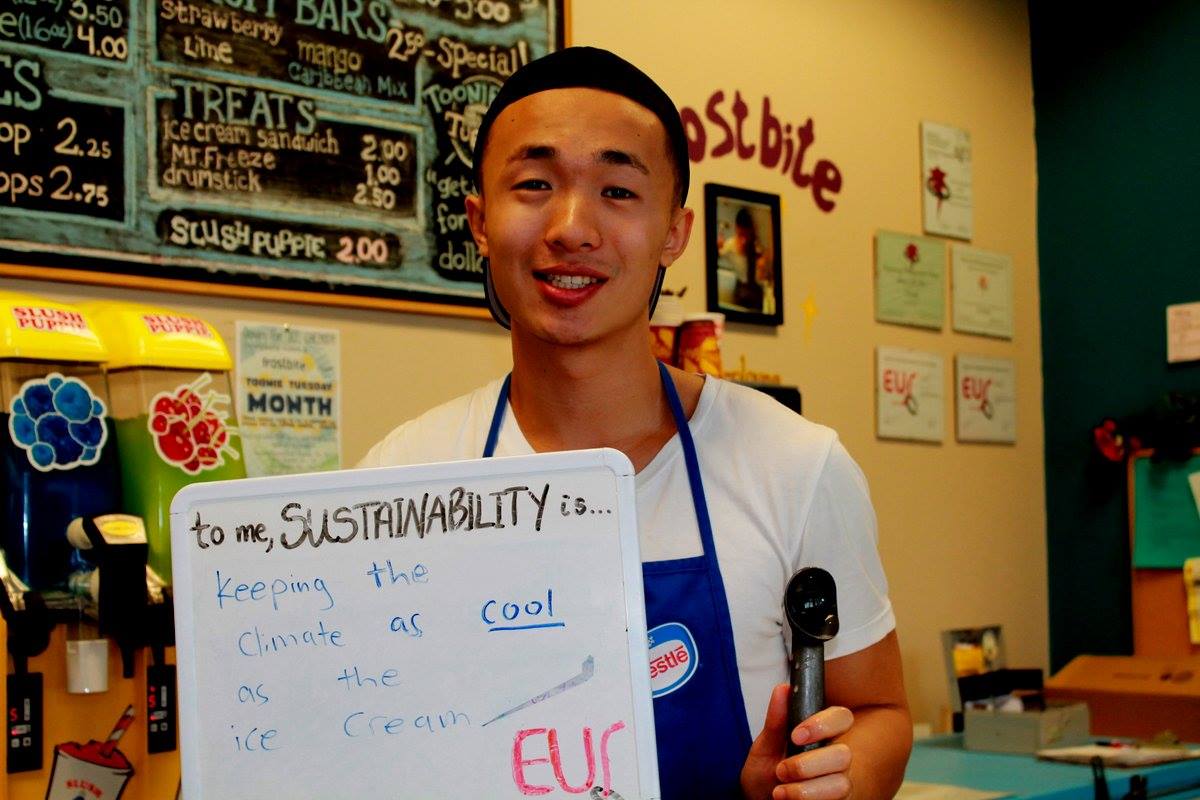 3.50
e(16oz) 4.00
op 2.25
ops 2.75
BARS
strawberry
Lime
mango
Caribbean Mix
2.50
TREATS
ice cream sandwich 2.00
Mr. Freeze 1.00
drumstick 2.50
SLUSH PUPPIE 2.00
5.00
-Special!
TOONIE
Tu
"get
for
doll
ostbite
SLUSH
PUPPiE
SLUSH
PUPPiE
frostbite
TOONIE TUESDAY
MONTH
EUS
EUS
to me, SUSTAINABILITY is...
keeping the
climate as cool
as the
ice cream
EUS
estlé
SLUSH